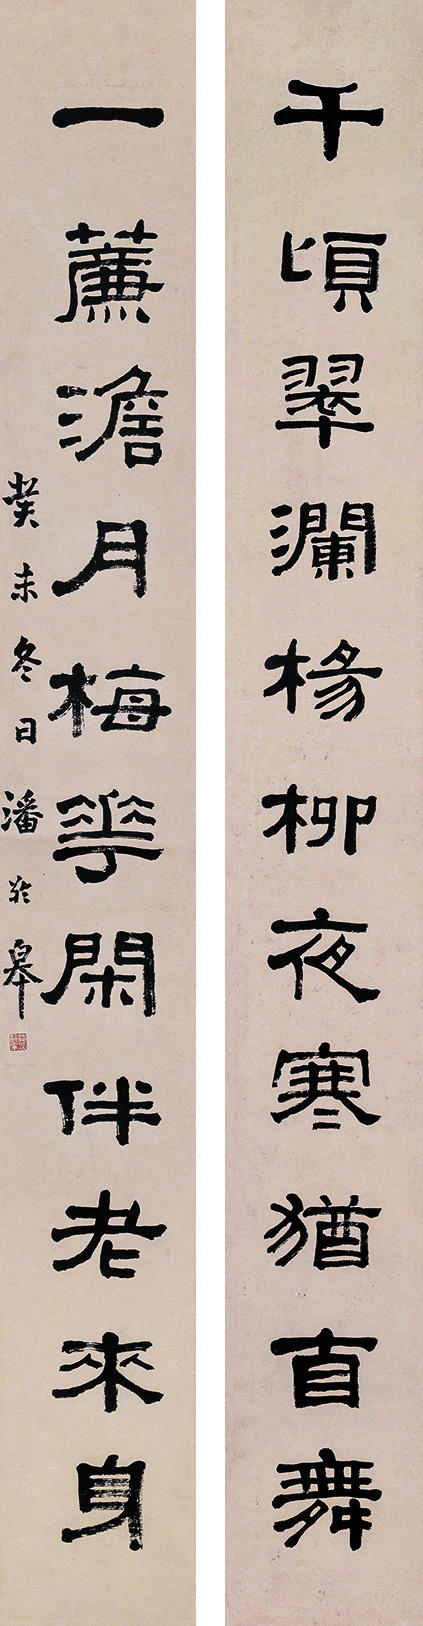 千頃翠瀾楊柳夜寒猶自舞
一薕澹月梅花閑伴老來身
癸未冬日 潘齡皋